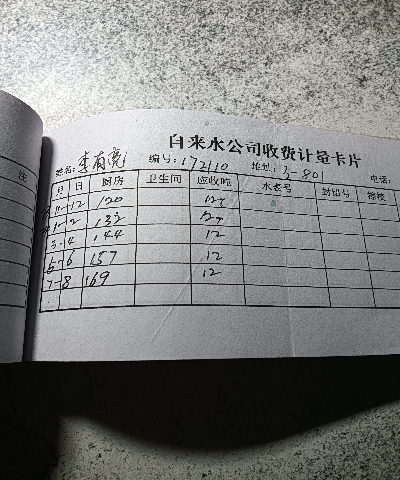 注
自来水公司收费计量卡片
姓名: 李有亮 编号: 172110 地址: 3-801 电话:
月 日 厨房 卫生间 应收吨 水表号 封铅号 擦校
11-12 120 12T
1-12 132 12T
3-14 144 12
5-6 157 12
7-8 169 12